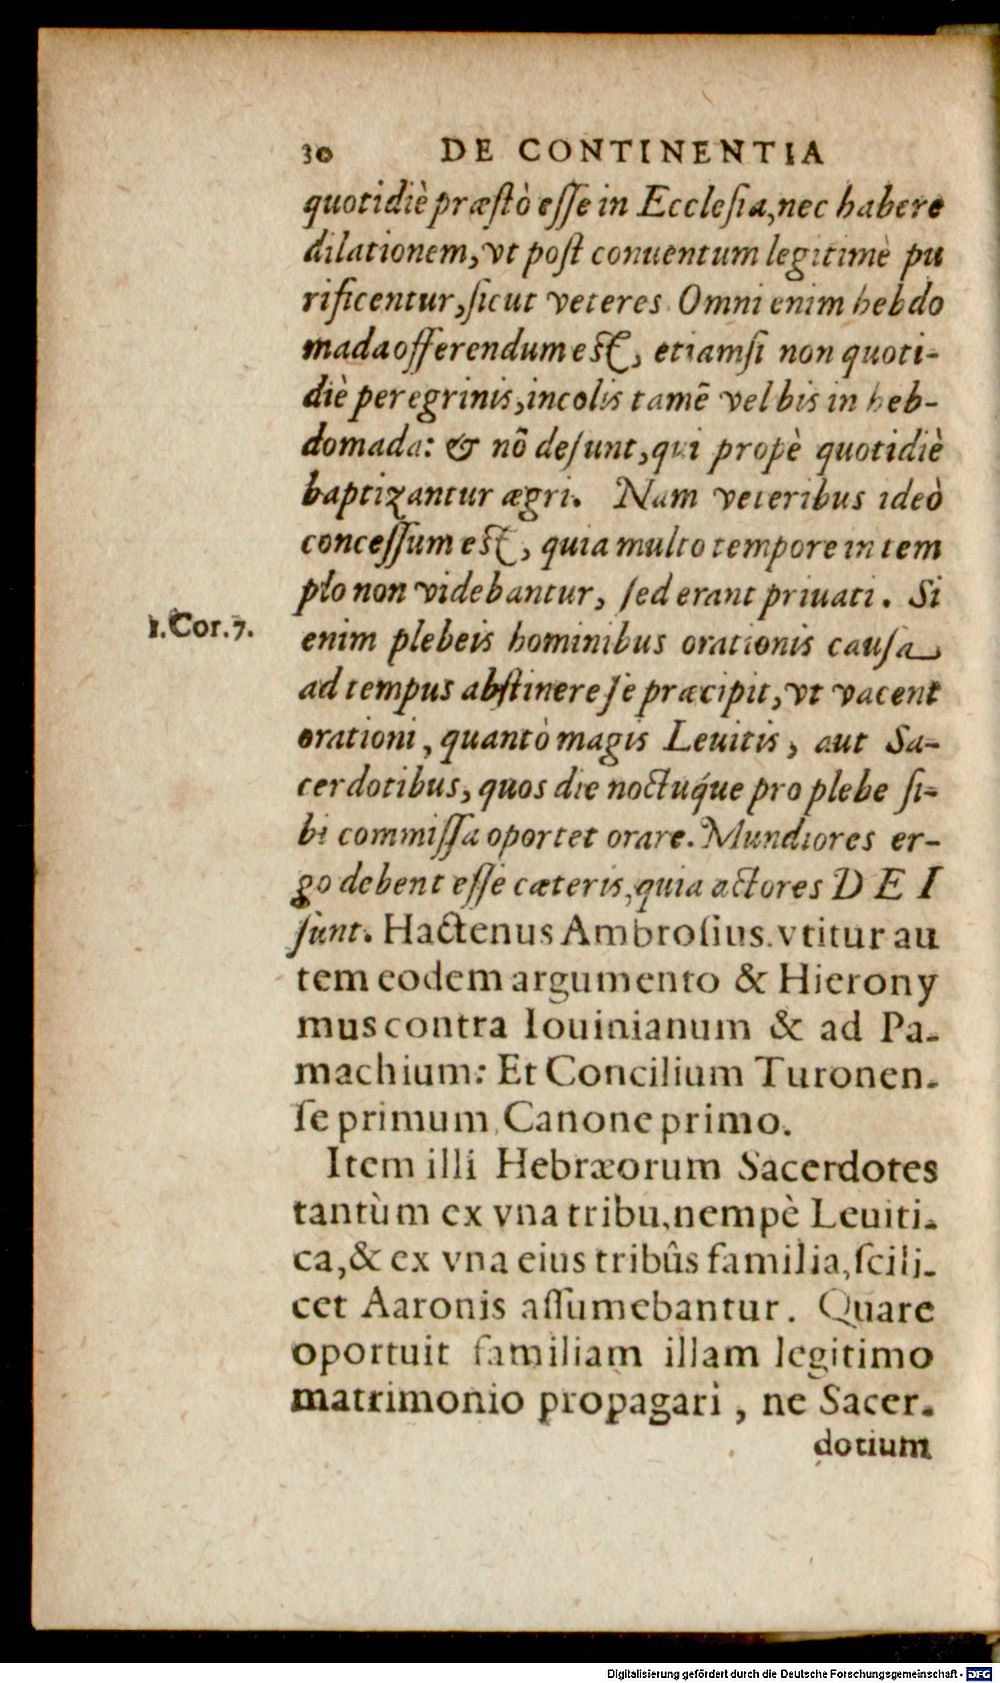 30 DE CONTINENTIA
quotidiè præstò esse in Ecclesia, nec habere
dilationem, vt post conuentum legitimè pu
rificentur, sicut veteres. Omni enim hebdo
mada offerendum est, etiamsi non quoti-
diè peregrinis, incolis tamē vel bis in heb-
domada: & nō desunt, qui propè quotidiè
baptizantur ægri. Nam veteribus ideò
concessum est, quia multo tempore in tem
plo non videbantur, sed erant priuati. Si
1. Cor. 7.
enim plebeis hominibus orationis causa
ad tempus abstinere se præcipit, vt vacent
orationi, quantò magis Leuitis, aut Sa-
cerdotibus, quos die noctuq́ue pro plebe si-
bi commissa oportet orare. Mundiores er-
go debent esse cæteris, quia actores DEI
sunt. Hactenus Ambrosius. vtitur au
tem eodem argumento & Hierony
mus contra Iouinianum & ad Pa-
machium: Et Concilium Turonen-
se primum Canone primo.
Item illi Hebræorum Sacerdotes
tantùm ex vna tribu, nempè Leuiti-
ca, & ex vna eius tribûs familia, scili-
cet Aaronis assumebantur. Quare
oportuit familiam illam legitimo
matrimonio propagari, ne Sacer-
dotium
Digitalisierung gefördert durch die Deutsche Forschungsgemeinschaft - DFG